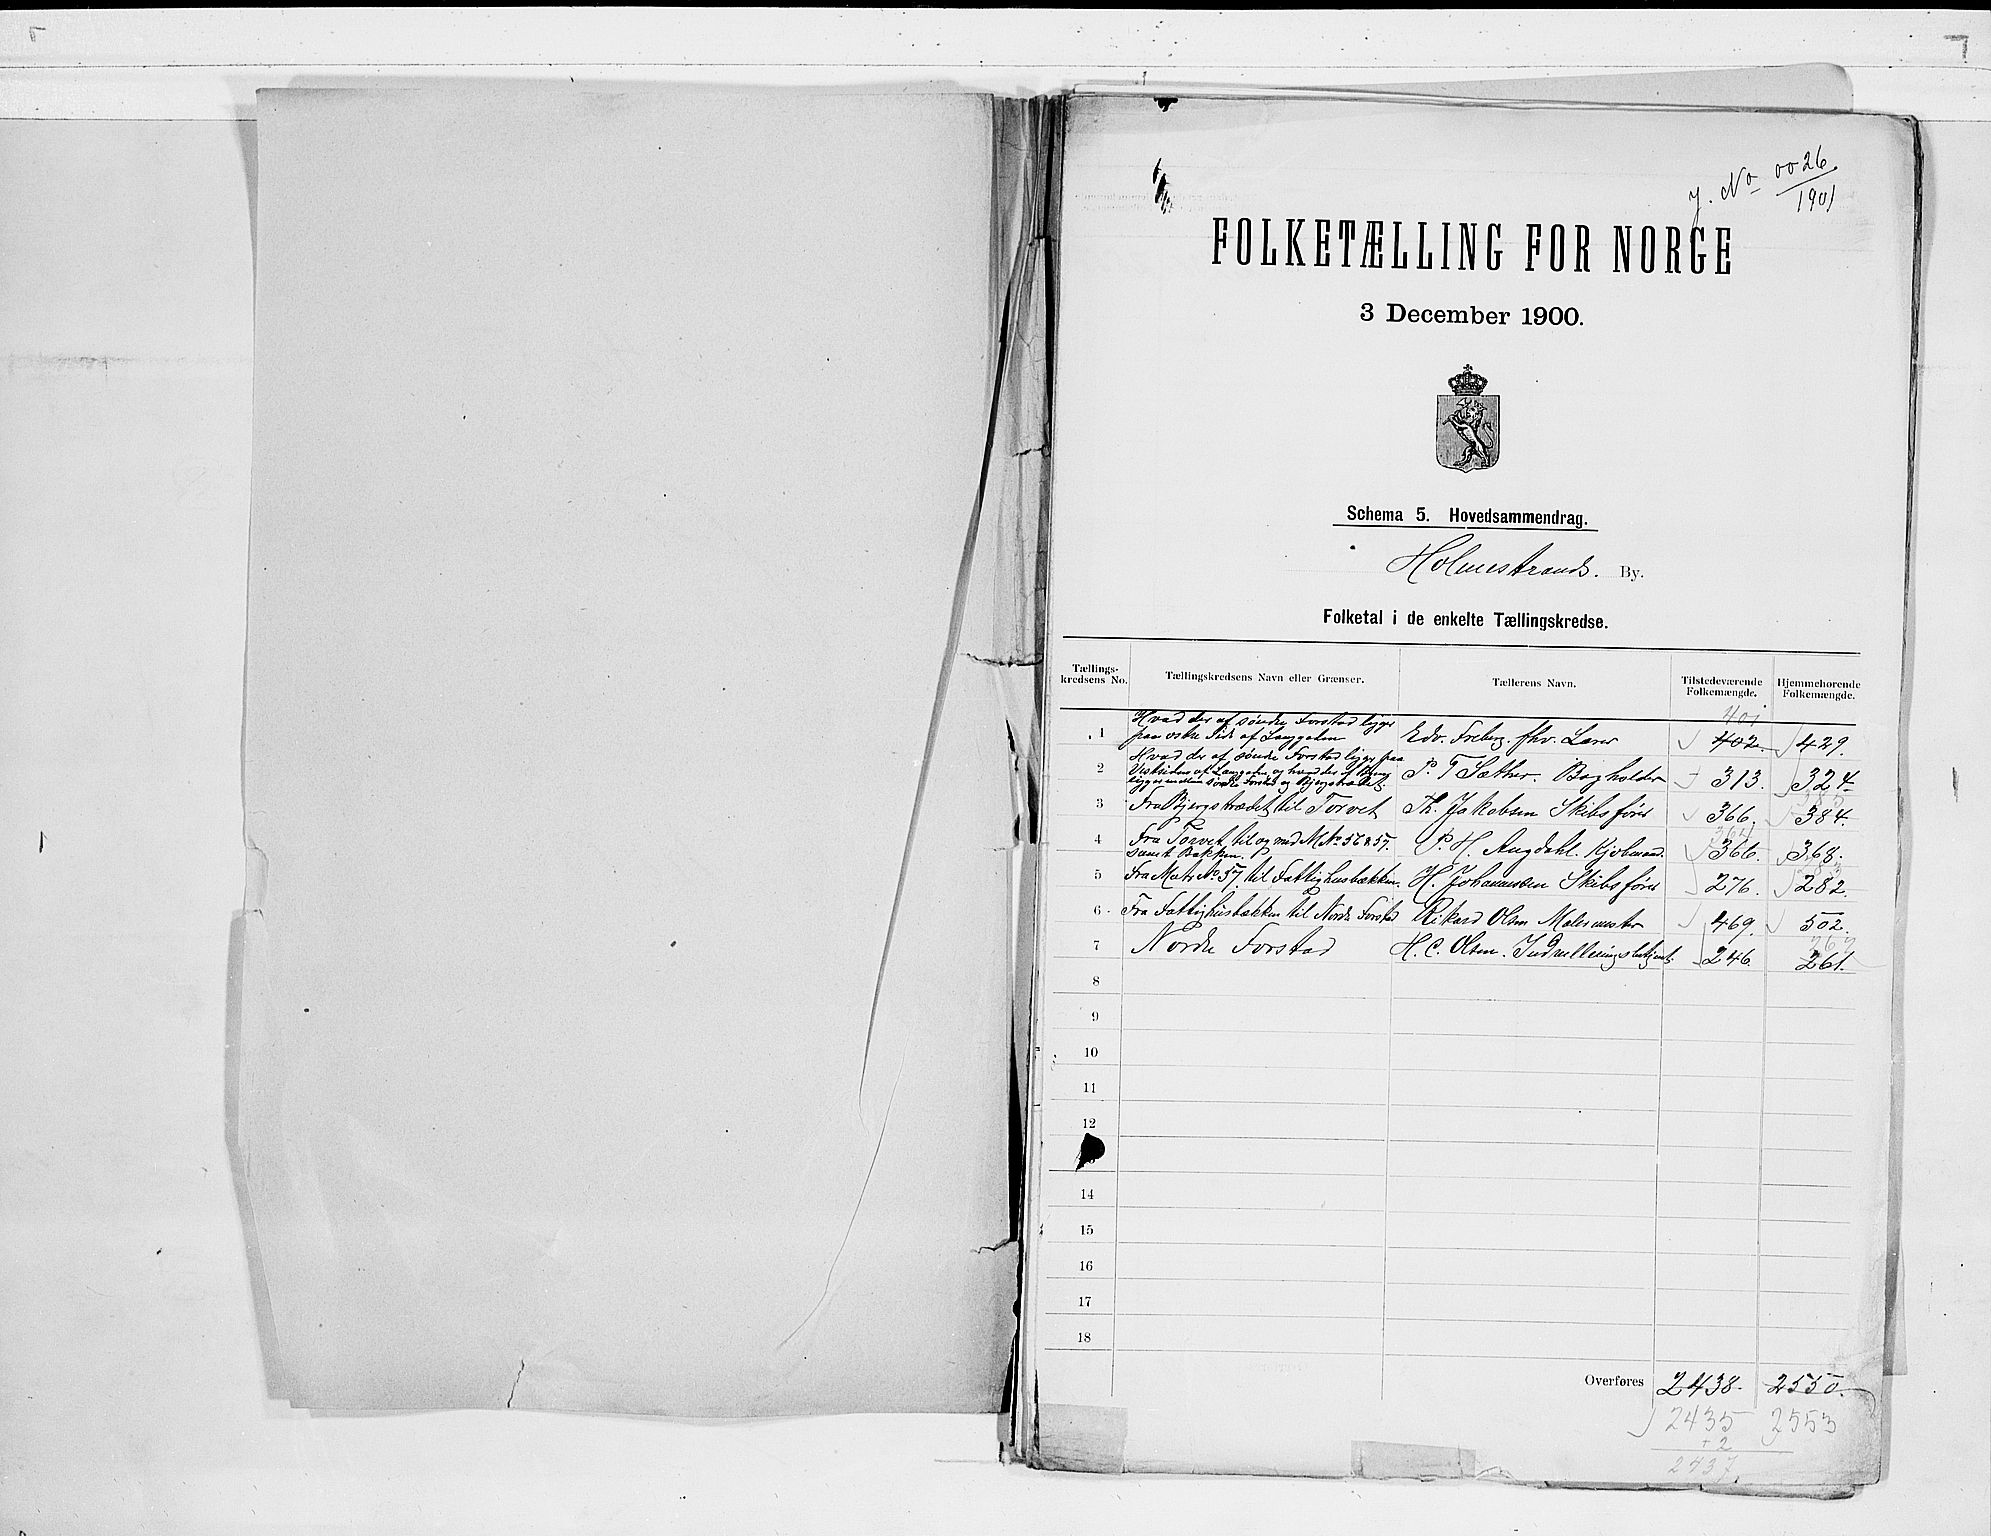 J. No 0026
1901
FOLKETÆLLING FOR NORGE
3 December 1900.
Schema 5. Hovedsammendrag.
Holmestrands. By.
Folketal i de enkelte Tællingskredse.
Tællings-kredsens No. Tællingskredsens Navn eller Grænser. Tællerens Navn. Tilstedeværende Folkemængde. Hjemmehørende Folkemængde.
401
Hvad der af søndre Forstad ligger
1 paa østre Side af Langgaden Edv. Freberg. fhv. Lærer 402 429.
Hvad der af søndre Forstad ligger paa
2 Vestsiden af Langgaden og hvad der af Byen P. T. Sæther. Bogholder 313. 324
ligger mellem søndre Forstad og Bjergstrædet
385
3 Fra Bjergstrædet til Torvet Th. Jakobsen Skibsfører 366. 384.
364
4 Fra Torvet til og med M No 56 & 57. P. H. Augdahl. Kjøbmand. 366. 368.
samt Bakken.
283
5 Fra Matr No 57. til Fattighusbækken. H. Johannesen Skibsfører 276. 282.
6 Fra Fattighusbækken til Nordre Forstad Rikard Olsen Malermester 469. 502.
262
7 Nordre Forstad H. C. Olsen. Indrulleringsbetjent. 246 261.
8
9
10
11
12
14
15
16
17
18
Overføres 2438. 2550.
2435 2553
+2
2437.